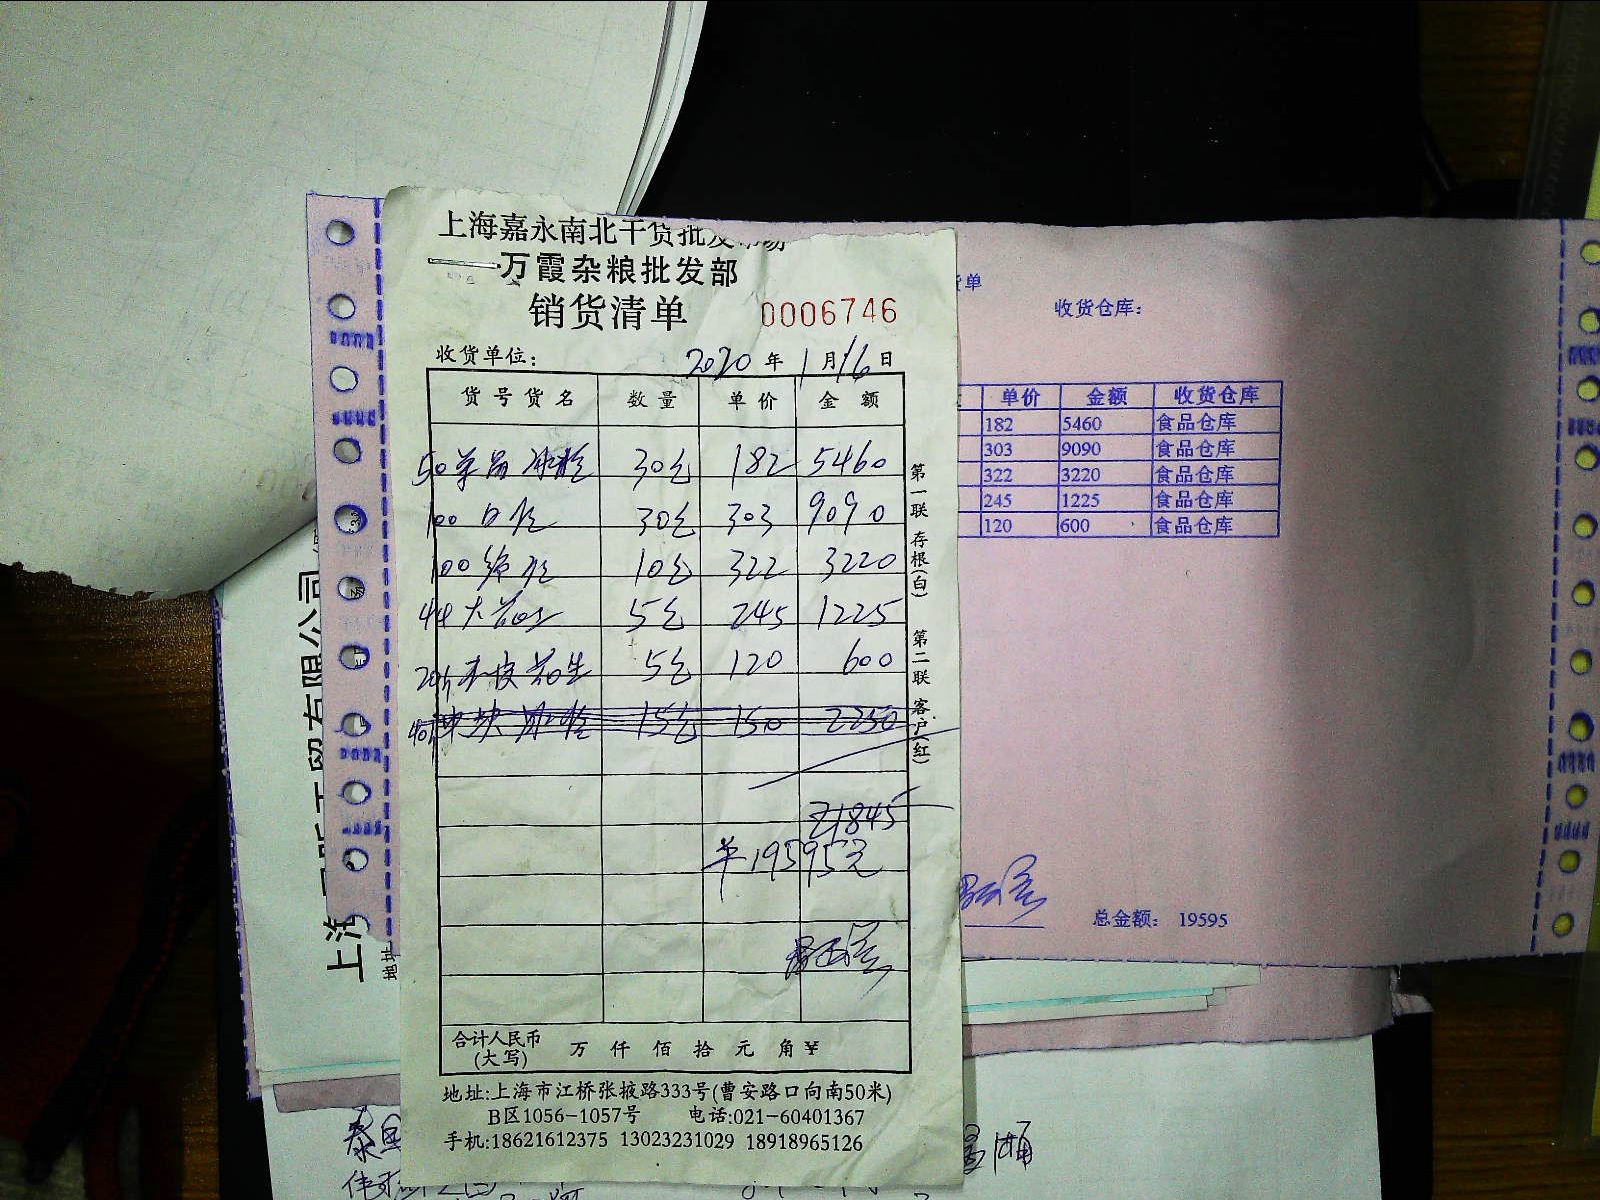 上海嘉永南北干货批发市场
——万霞杂粮批发部
销货清单 0006746
收货单位： 2020 年 1 月 16 日
货号货名 数量 单价 金额
50 30包 182 5460
100 30包 303 9090
100 10包 322 3220
5包 245 1225
花生 5包 120 600
15包 150 2250
21845
19595元
合计人民币
(大写) 万 仟 佰 拾 元 角 ¥
地址:上海市江桥张掖路333号(曹安路口向南50米)
B区1056-1057号 电话:021-60401367
手机:18621612375 13023231029 18918965126
第一联 存根(白) 第二联 客户(红)
货单
收货仓库：
单价 金额 收货仓库
182 5460 食品仓库
303 9090 食品仓库
322 3220 食品仓库
245 1225 食品仓库
120 600 食品仓库
总金额： 19595
上海
贸有限公司
地址